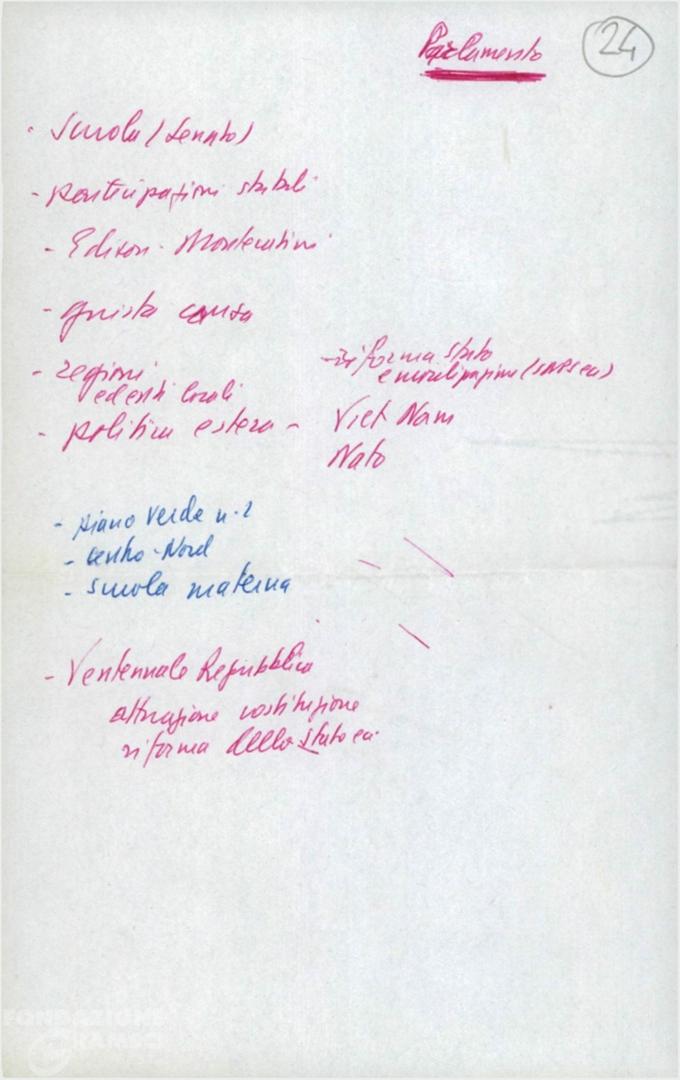 Parlamento
24
- Scuola (Senato)
- partecipazioni statali
- Edison - Montecatini
- giusta causa
- regioni
ed enti locali
- riforma stato
- politica estera - Viet Nam
Nato
- piano verde n. 2
- centro-Nord
- scuola materna
- Ventennale Repubblica
attuazione costituzione
riforma dello stato ecc.
FONDAZIONE
GRAMSCI